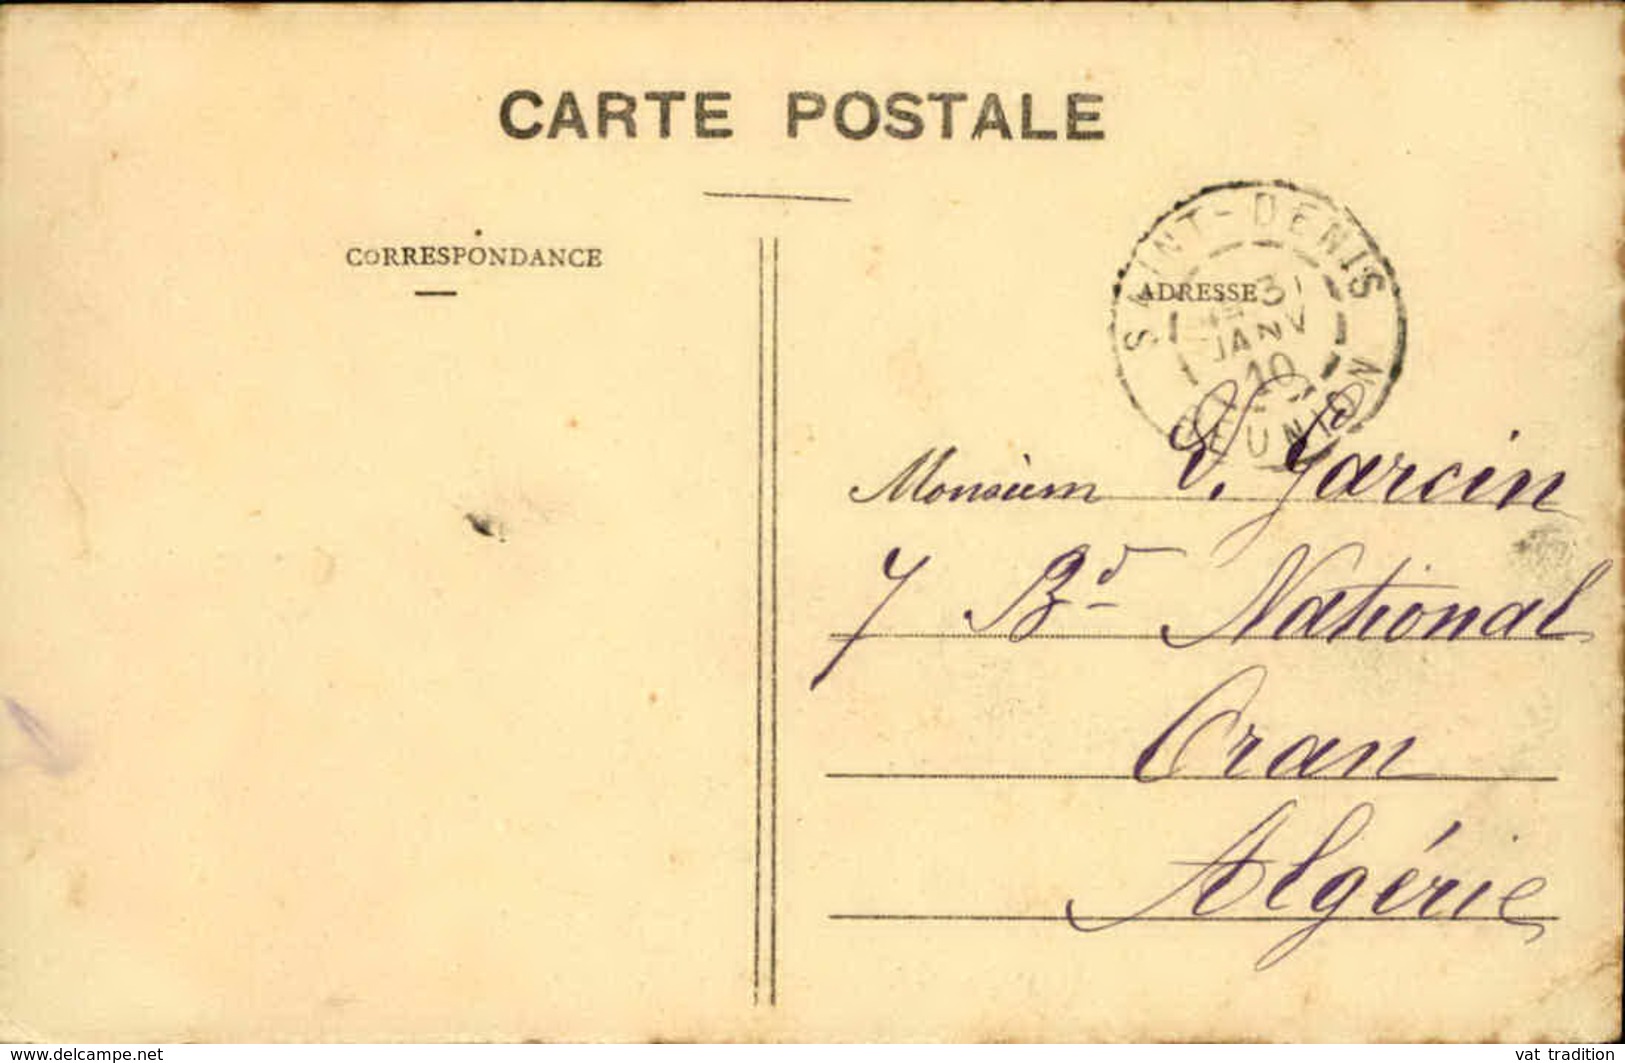 CARTE POSTALE
CORRESPONDANCE
ADRESSE
SAINT-DENIS
31
JANV
10
REUNION
Monsieur V. Garcin
7 Bd National
Oran
Algérie
www.delcampe.net
vat_tradition